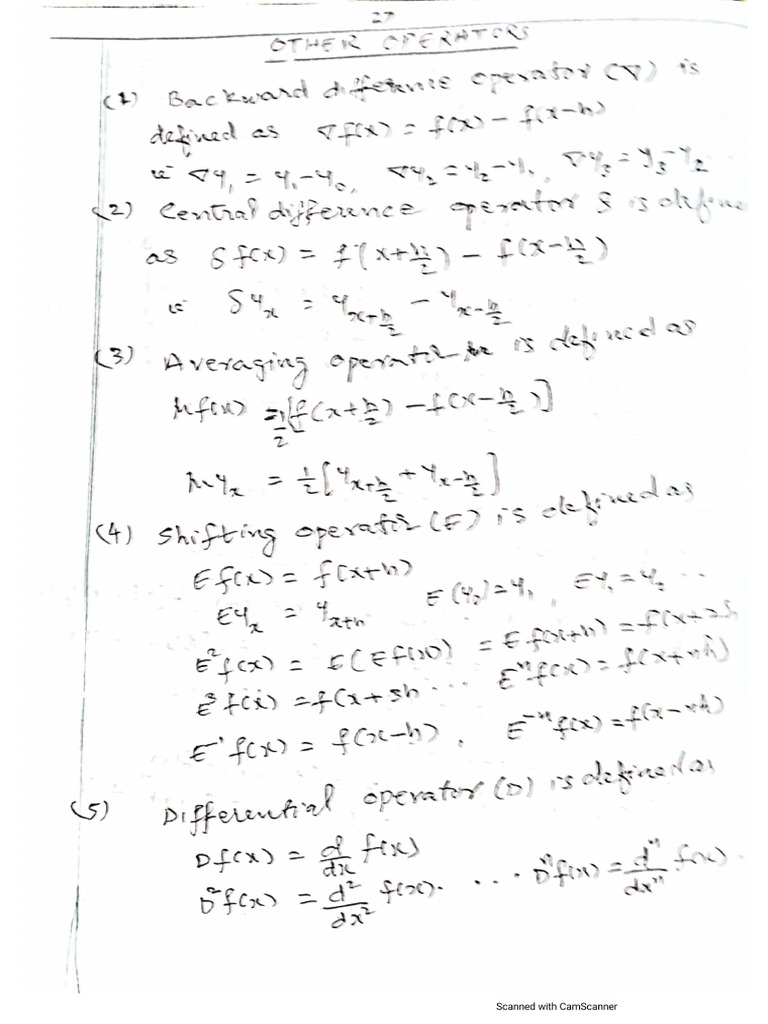 27
OTHER OPERATORS
(1) Backward difference operator (∇) is
defined as ∇f(x) = f(x) - f(x-h)
ie ∇y₁ = y₁-y₀, ∇y₂ = y₂-y₁, ∇y₃ = y₃-y₂
(2) Central difference operator δ is define
as δf(x) = f(x+h/2) - f(x-h/2)
ie δyₓ = y_{x+h/2} - y_{x-h/2}
(3) Averaging operator μ is defined as
μf(x) = 1/2[f(x+h/2) - f(x-h/2)]
μyₓ = 1/2[y_{x+h/2} + y_{x-h/2}]
(4) Shifting operator (E) is defined as
Ef(x) = f(x+h)
Eyₓ = y_{x+h} E(y₀)=y₁, Ey₁=y₂ ...
E²f(x) = E(Ef(x)) = Ef(x+h) = f(x+2h
E³f(x) = f(x+3h ... Eⁿf(x) = f(x+nh)
E⁻¹f(x) = f(x-h), E⁻ⁿf(x) = f(x-nh)
(5) Differential operator (D) is defined as
Df(x) = d/dx f(x)
D²f(x) = d²/dx² f(x). ... Dⁿf(x) = dⁿ/dxⁿ f(x).
Scanned with CamScanner